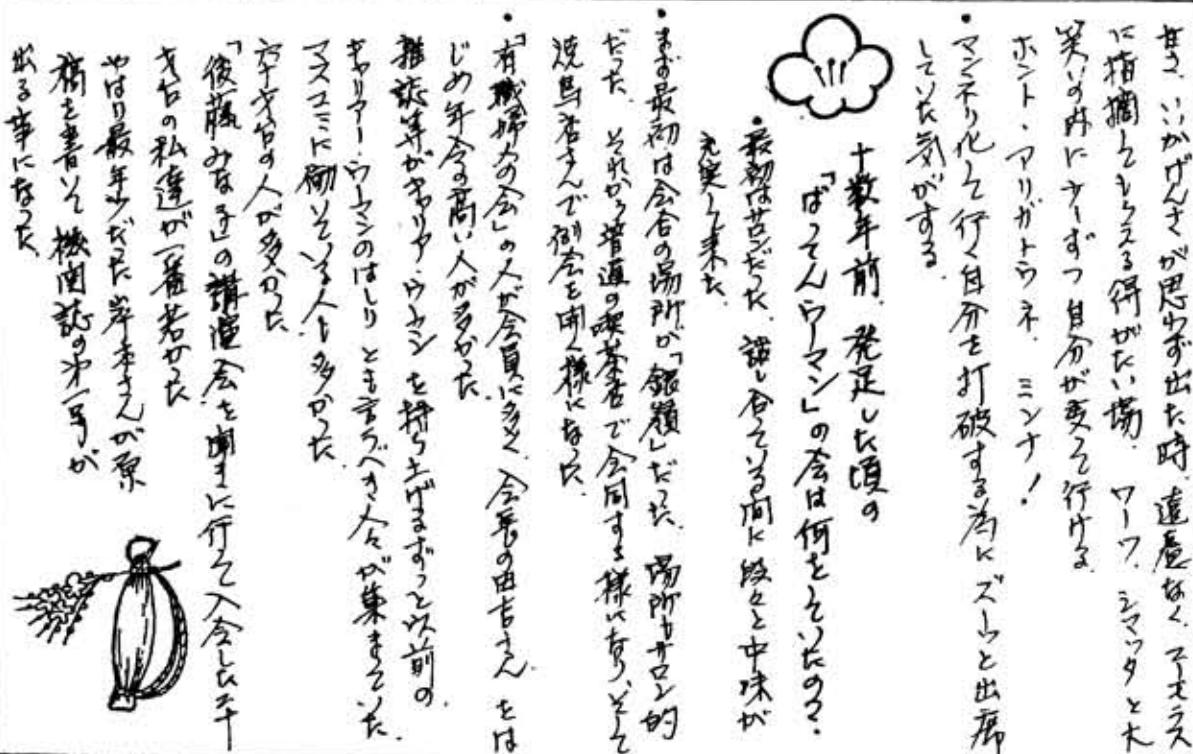 甘さ、いいかげんさが思わず出た時、遠慮なく、ユーモラス
に指摘してもらえる得がたい場。ワーワ、シマッタと大
笑いの内に少ーずつ自分が変って行ける。
ホント、アリガトウネ、ミンナ!
・マンネリ化して行く自分を打破する為にズーッと出席
していた気がする。
十数年前、発足した頃の
「ばってんウーマン」の会は何をしていたの?
・最初は苦だった。話し合っている間に段々と中味が
充実して来た。
・まず最初は会合の場所が「銀嶺」だった。場所もサロン的
だった。それから普通の喫茶店で会同する様になり、そして
焼鳥屋さんで例会を開く様になった。
・「有職婦人の会」の人が会員に多く、会長の由吉さん、をは
じめ年令の高い人が多かった。
雑誌等がキャリア・ウーマンを持ち上げるずっと以前の
キャリアー・ウーマンのはしりとも言うべき人々が集まっていた。
マスコミに働いている人も多かった。
六十才台の人が多かった。
「後藤みな子」の講演会を聞きに行って入会した二十
才台の私達が一番若かった
やはり最年少だった岸本さんが原
稿を書いて機関誌の第一号が
出る事になった。